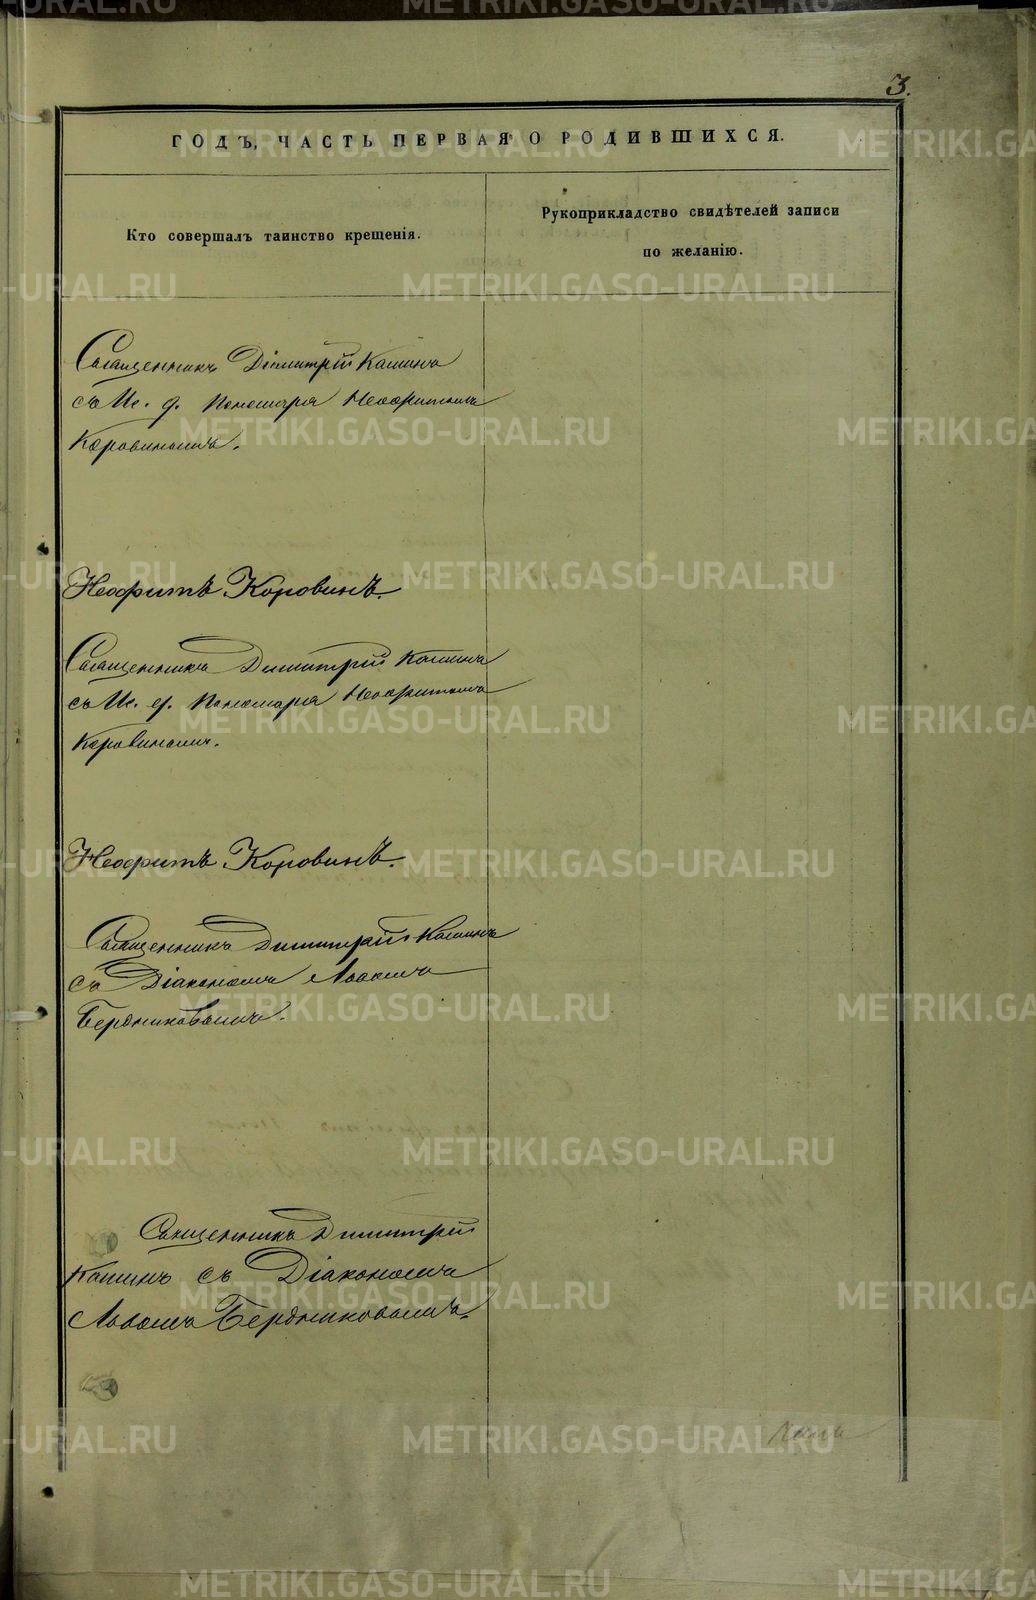 3.
ГОДЪ, ЧАСТЬ ПЕРВАЯ О РОДИВШИХСЯ.
Кто совершалъ таинство крещенія.
Рукоприкладство свидѣтелей записи
по желанію.
Священникъ Дімитрій Кашинъ
съ И. д. Пономаря Неофитомъ
Коровинымъ.
Неофитъ Коровинъ.
Священникъ Димитрій Кашинъ
съ И. д. Пономаря Неофитомъ
Коровинымъ.
Неофитъ Коровинъ.
Священникъ Димитрій Кашинъ
съ Діакономъ Львомъ
Бердниковымъ.
Священникъ Димитрій
Кашинъ съ Діакономъ
Львомъ Бердниковымъ.
METRIKI.GASO-URAL.RU